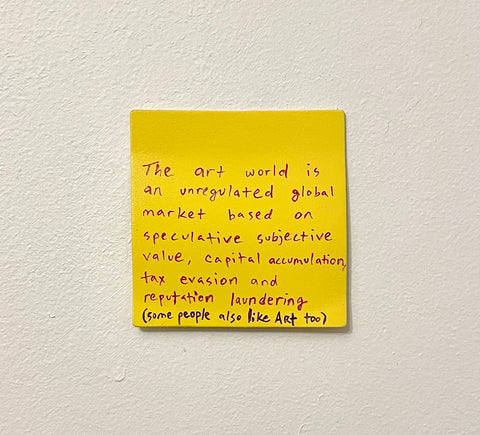 The art world is
an unregulated global
market based on
speculative subjective
value, capital accumulation,
tax evasion and
reputation laundering
(some people also like Art too)